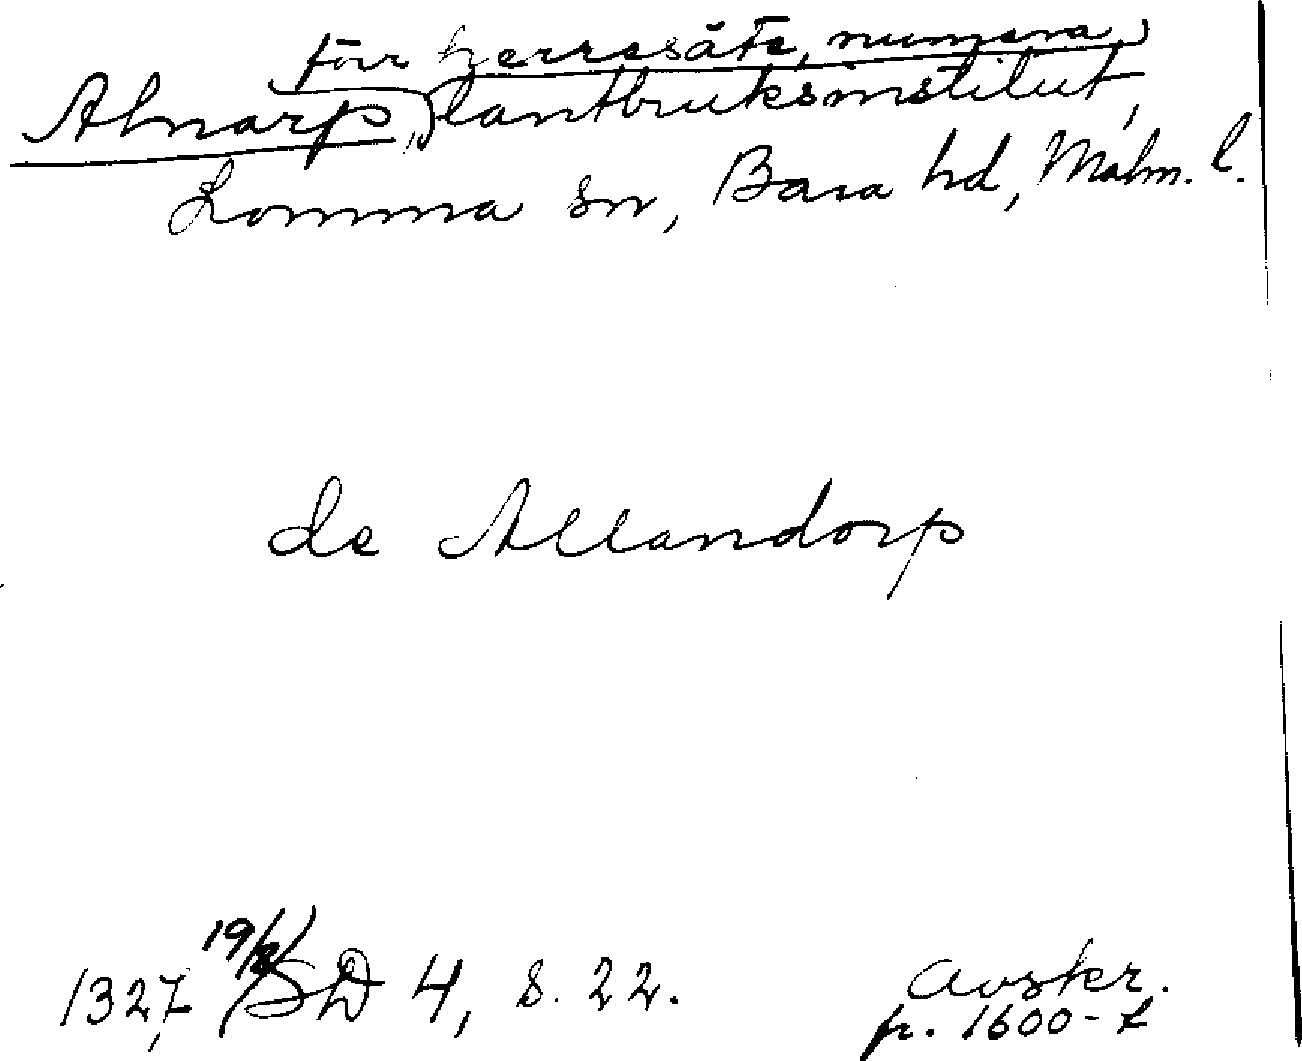 förr herresäte, numera
Alnarp, lantbruksinstitut,
Lomma sn, Bara hd, Malm. l.
de Allandorp
1327, 19/2 SD 4, s. 22.
Avskr.
fr. 1600-t